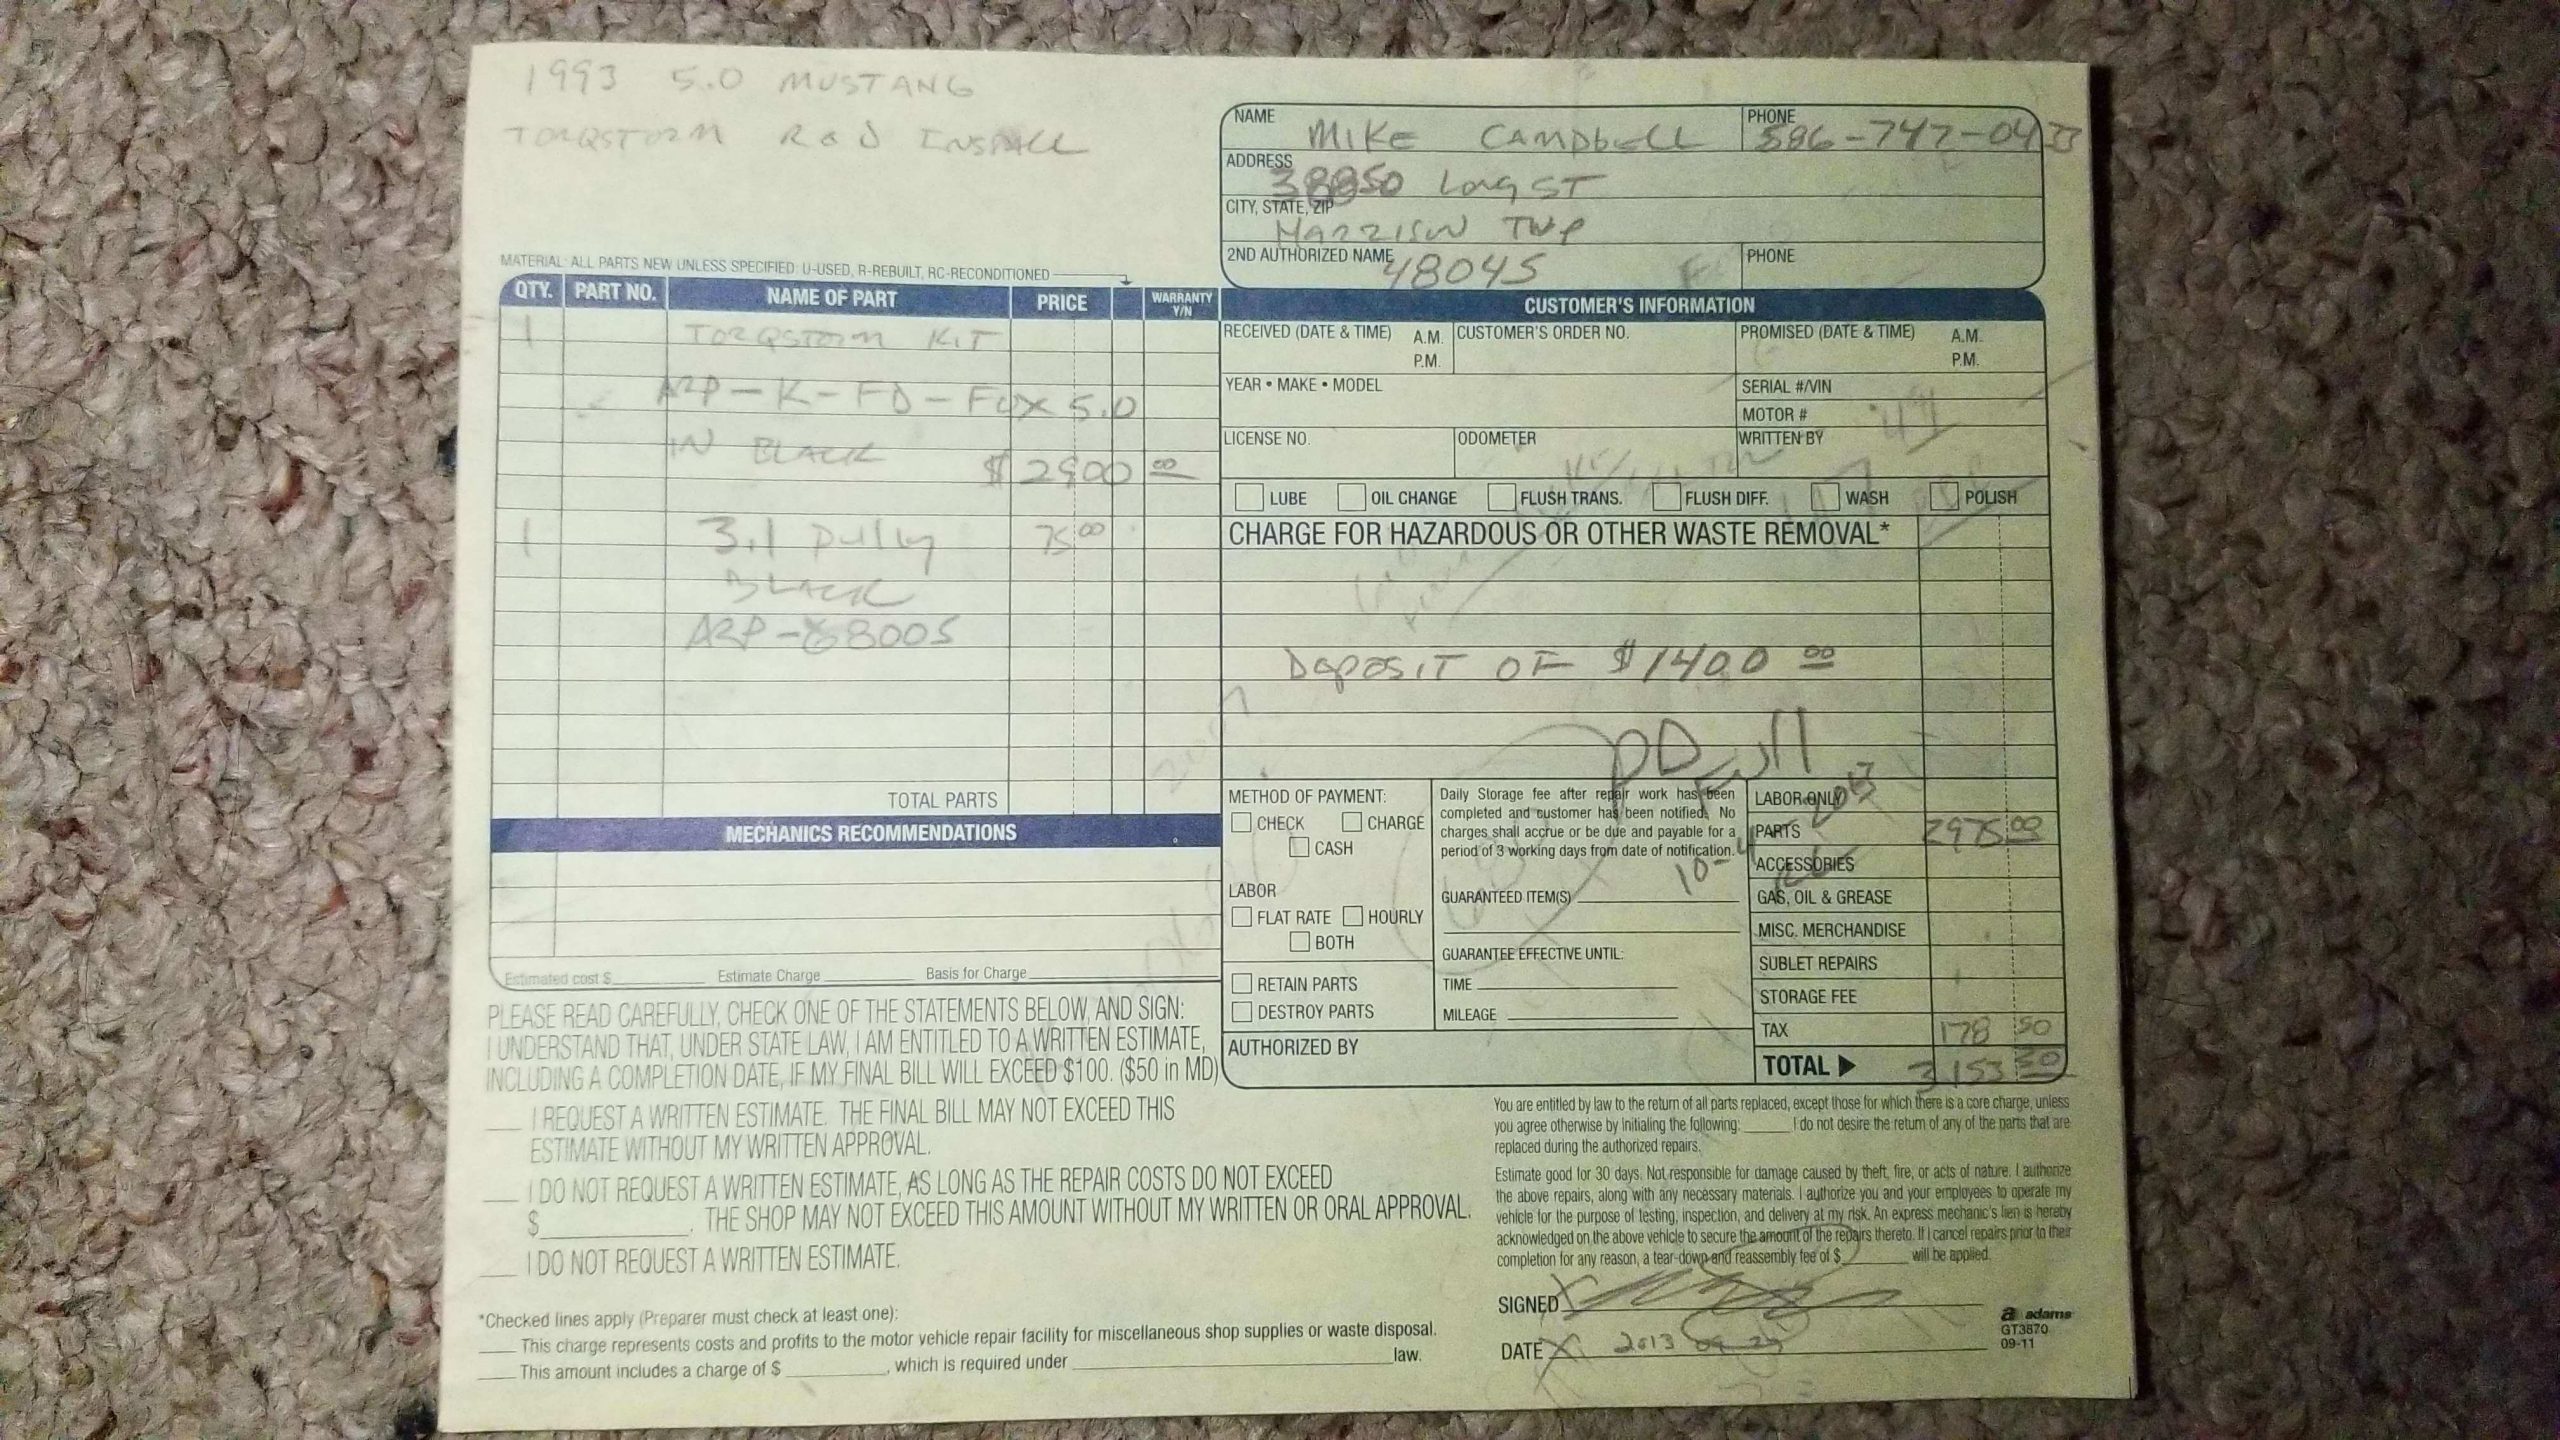 1993 5.0 MUSTANG
TORQSTORM R&D INSTALL
NAME MIKE CAMPbELL
PHONE 586-747-0433
ADDRESS 38850 Long ST
CITY, STATE, ZIP
HARRISON TWP
2ND AUTHORIZED NAME 48045
PHONE
MATERIAL: ALL PARTS NEW UNLESS SPECIFIED: U-USED, R-REBUILT, RC-RECONDITIONED
QTY. PART NO. NAME OF PART PRICE WARRANTY Y/N
1 TORQSTORM KIT
ARP-K-FD-FOX 5.0
IN BLACK
$2900 00
1 3.1 Pully 75 00
BLACK
ARP-68005
TOTAL PARTS
MECHANICS RECOMMENDATIONS
Estimated cost $ Estimate Charge Basis for Charge
CUSTOMER'S INFORMATION
RECEIVED (DATE & TIME) A.M. P.M.
CUSTOMER'S ORDER NO.
PROMISED (DATE & TIME) A.M. P.M.
YEAR • MAKE • MODEL
SERIAL #/VIN
MOTOR #
LICENSE NO. ODOMETER WRITTEN BY
LUBE OIL CHANGE FLUSH TRANS. FLUSH DIFF. WASH POLISH
CHARGE FOR HAZARDOUS OR OTHER WASTE REMOVAL*
DEPOSIT OF $1400 00
PD Full
METHOD OF PAYMENT:
CHECK CHARGE
CASH
LABOR
FLAT RATE HOURLY
BOTH
RETAIN PARTS
DESTROY PARTS
Daily Storage fee after repair work has been
completed and customer has been notified. No
charges shall accrue or be due and payable for a
period of 3 working days from date of notification.
GUARANTEED ITEM(S)
GUARANTEE EFFECTIVE UNTIL:
TIME
MILEAGE
LABOR ONLY
PARTS 2975 00
ACCESSORIES
GAS, OIL & GREASE
MISC. MERCHANDISE
SUBLET REPAIRS
STORAGE FEE
TAX 178 50
TOTAL 3153 50
AUTHORIZED BY
PLEASE READ CAREFULLY, CHECK ONE OF THE STATEMENTS BELOW, AND SIGN:
I UNDERSTAND THAT, UNDER STATE LAW, I AM ENTITLED TO A WRITTEN ESTIMATE,
INCLUDING A COMPLETION DATE, IF MY FINAL BILL WILL EXCEED $100. ($50 in MD)
I REQUEST A WRITTEN ESTIMATE. THE FINAL BILL MAY NOT EXCEED THIS
ESTIMATE WITHOUT MY WRITTEN APPROVAL.
I DO NOT REQUEST A WRITTEN ESTIMATE, AS LONG AS THE REPAIR COSTS DO NOT EXCEED
$ . THE SHOP MAY NOT EXCEED THIS AMOUNT WITHOUT MY WRITTEN OR ORAL APPROVAL.
I DO NOT REQUEST A WRITTEN ESTIMATE.
*Checked lines apply (Preparer must check at least one):
This charge represents costs and profits to the motor vehicle repair facility for miscellaneous shop supplies or waste disposal.
This amount includes a charge of $ , which is required under law.
You are entitled by law to the return of all parts replaced, except those for which there is a core charge, unless
you agree otherwise by initialing the following: I do not desire the return of any of the parts that are
replaced during the authorized repairs.
Estimate good for 30 days. Not responsible for damage caused by theft, fire, or acts of nature. I authorize
the above repairs, along with any necessary materials. I authorize you and your employees to operate my
vehicle for the purpose of testing, inspection, and delivery at my risk. An express mechanic's lien is hereby
acknowledged on the above vehicle to secure the amount of the repairs thereto. If I cancel repairs prior to their
completion for any reason, a tear-down and reassembly fee of $ will be applied.
SIGNED X
DATE X 2013
adams
GT3870
09-11